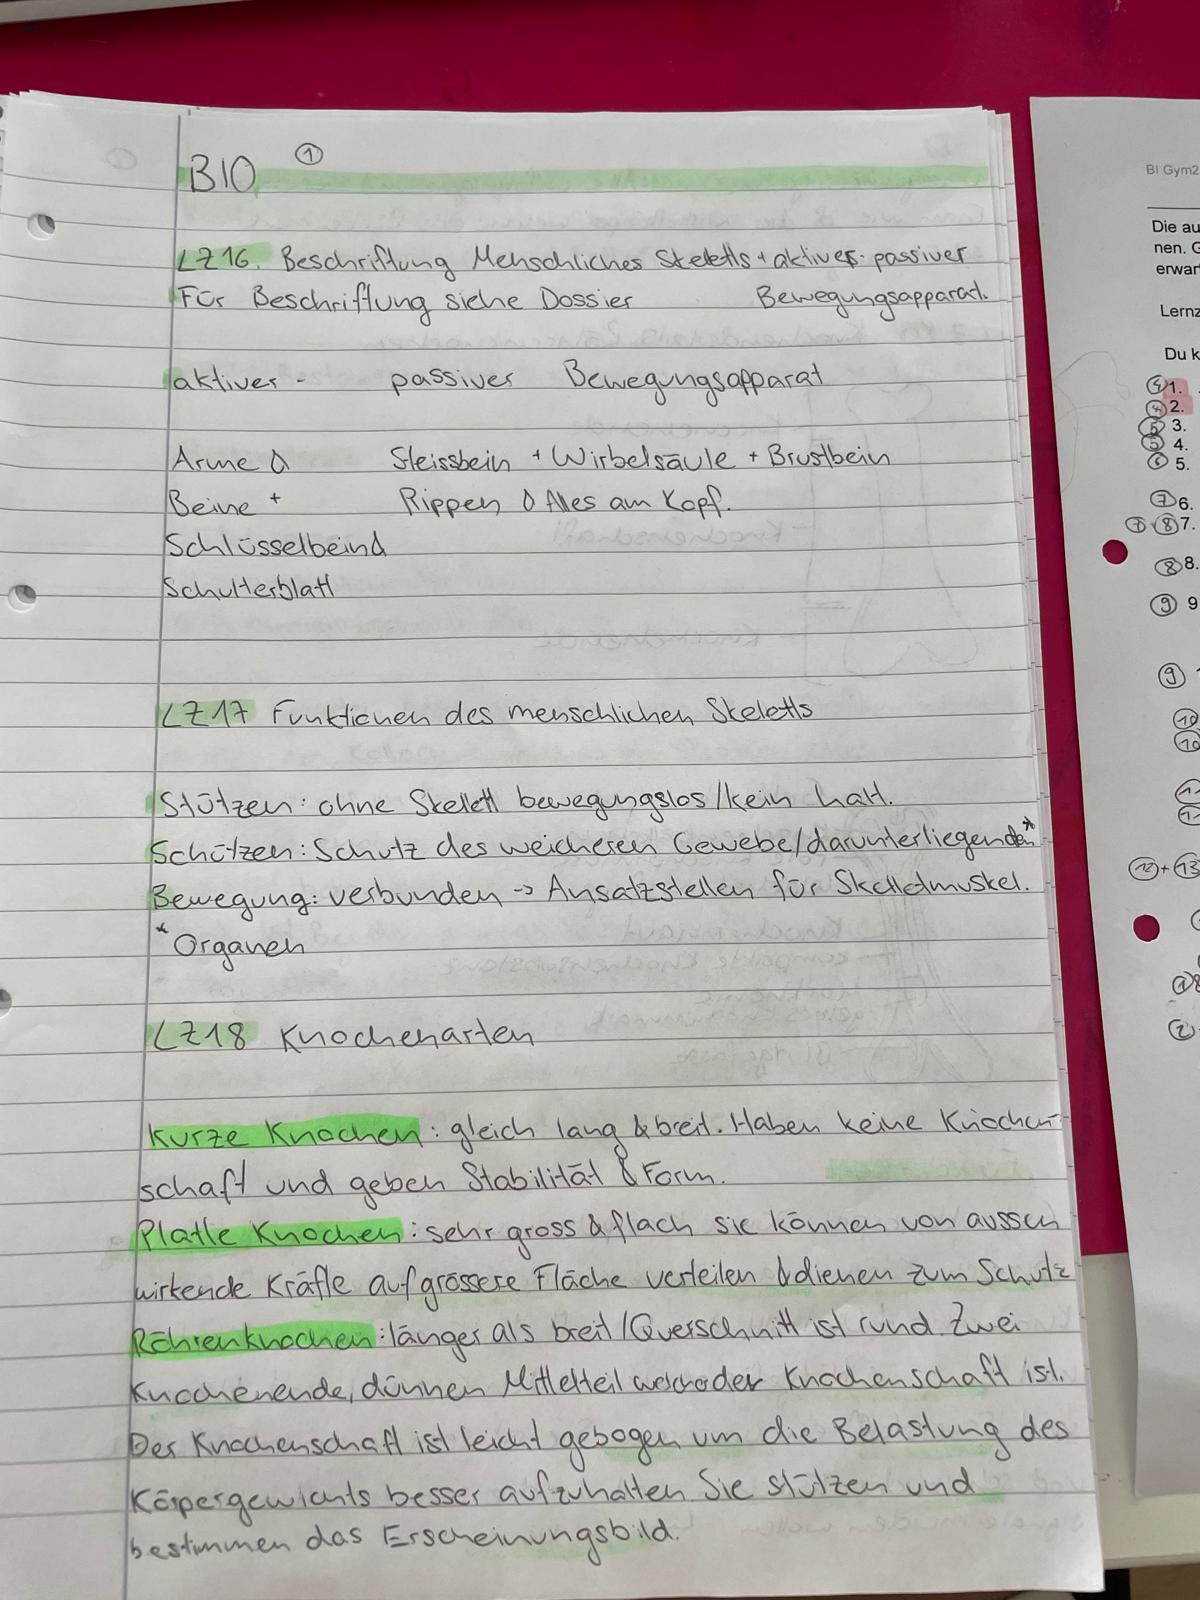 BIO ①
LZ16. Beschriftung Menschliches Skeletts + aktiver- passiver
Für Beschriftung siehe Dossier Bewegungsapparat.
aktiver - passiver Bewegungsapparat
Arme & Steissbein + Wirbelsäule + Brustbein
Beine + Rippen & Alles am Kopf.
Schlüsselbein &
Schulterblatt
LZ17 Funktionen des menschlichen Skeletts
Stützen: ohne Skelett bewegungslos/kein halt.
Schützen: Schutz des weicheren Gewebe/darunterliegenden*
Bewegung: verbunden -> Ansatzstellen für Skelletmuskel.
* Organen
LZ18 Knochenarten
Kurze Knochen: gleich lang & breit. Haben keine Knochen-
schaft und geben Stabilität & Form.
Platte Knochen: sehr gross & flach sie können von aussen
wirkende Kräfte auf grössere Fläche verteilen & dienen zum Schutz
Röhrenknochen: länger als breit/Querschnitt ist rund. Zwei
Knochenende, dünnen Mittelteil der Knochenschaft ist.
Der Knochenschaft ist leicht gebogen um die Belastung des
Körpergewichts besser aufzuhalten. Sie stützen und
bestimmen das Erscheinungsbild.
BI Gym2
Die au
nen. G
erwar
Lernz
Du k
④ 1.
④ 2.
⑤ 3.
⑤ 4.
⑥ 5.
⑦ 6.
⑦ ⑧ 7.
⑧ 8.
⑨ 9
⑨
⑩
⑩
⑫+⑬